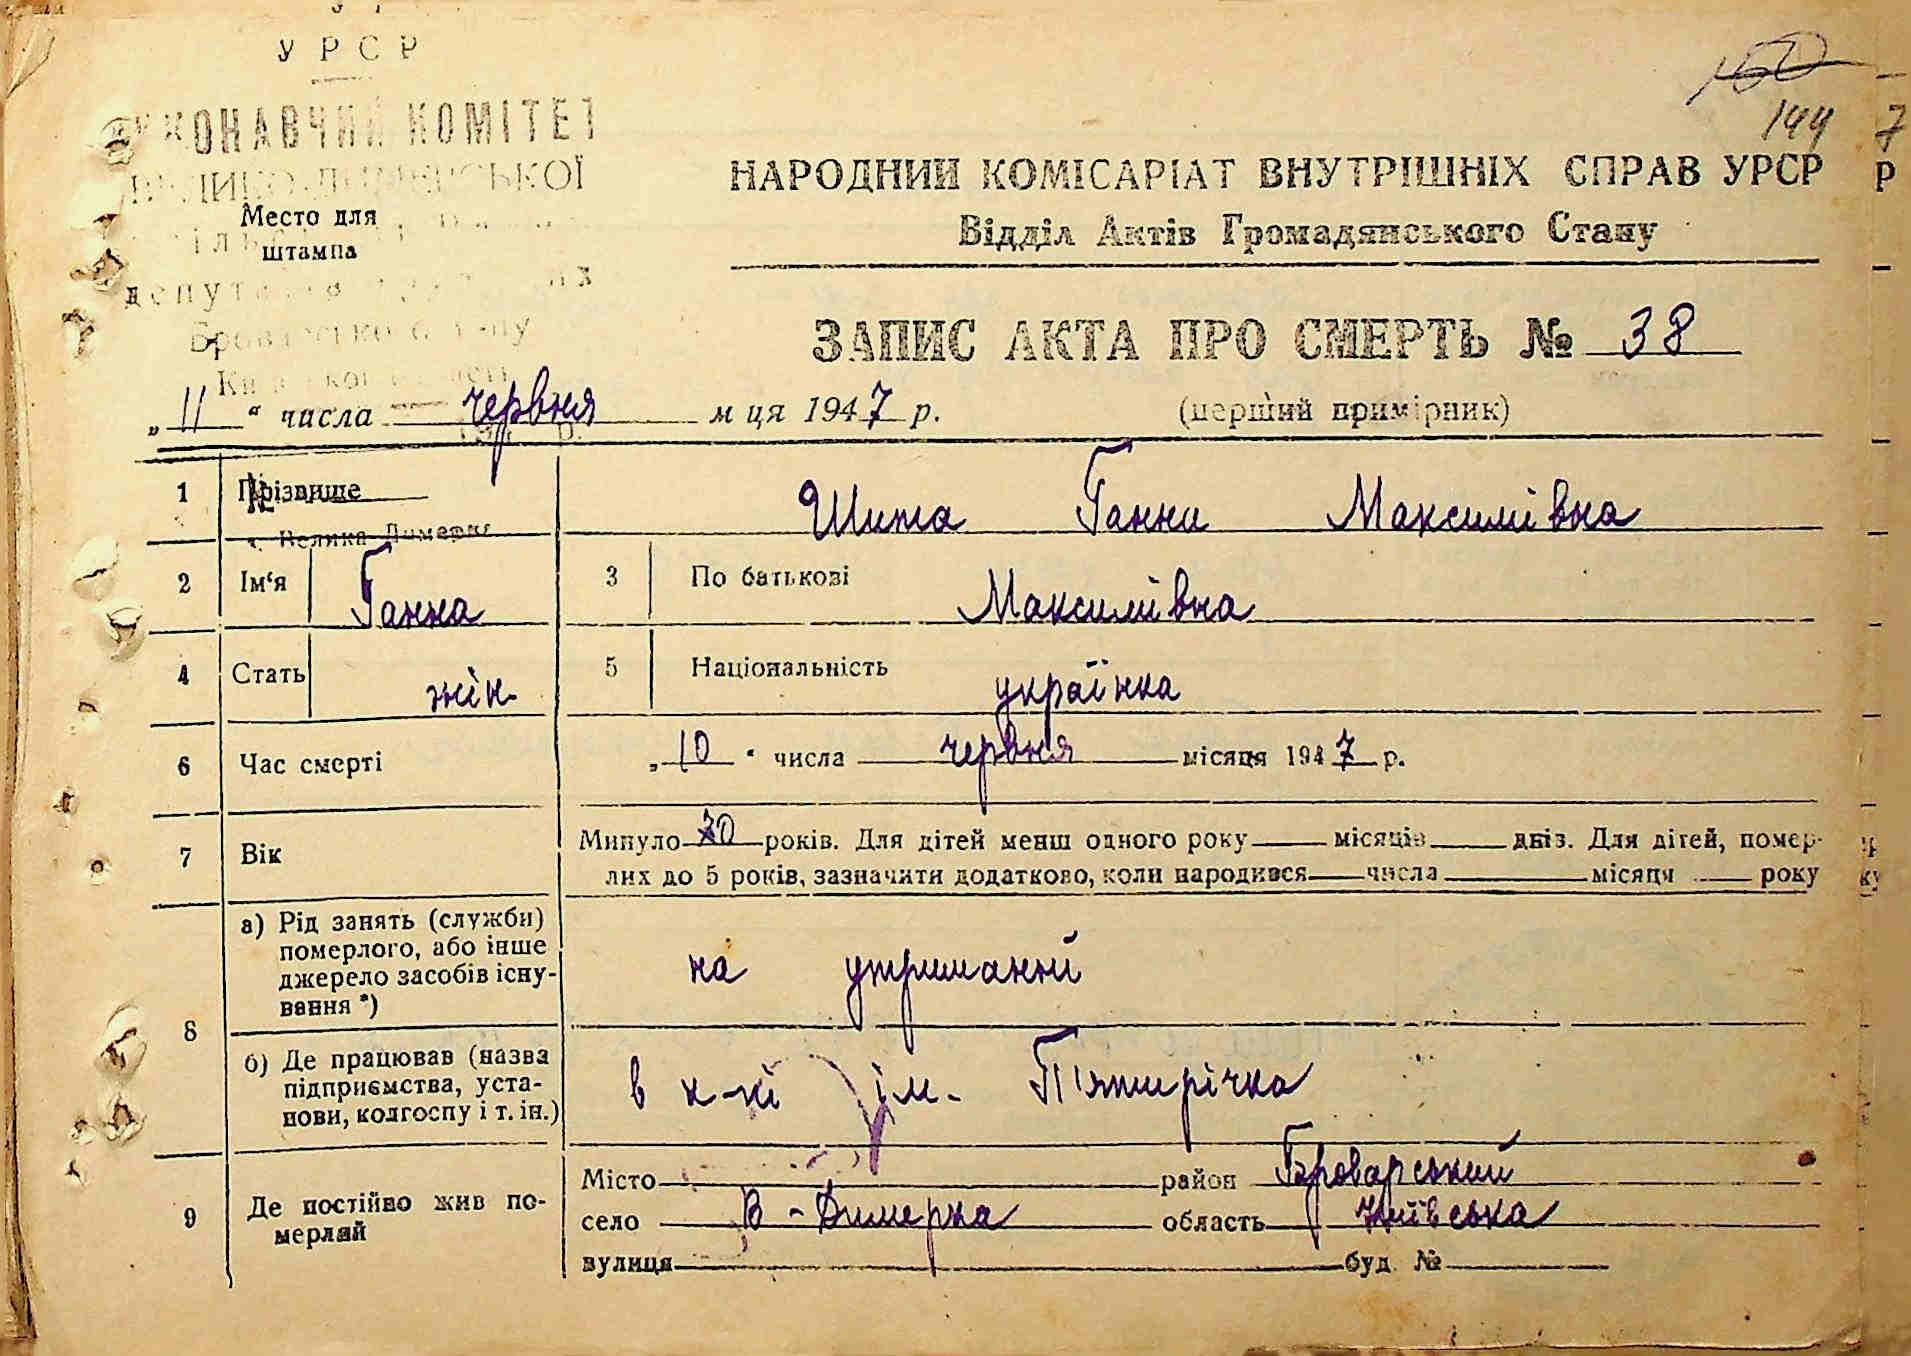 УРСР
ВИКОНАВЧИЙ КОМІТЕТ
ВЕЛИКО-ДИМЕРСЬКОЇ
Место для
штампа
депутатів
Броварського р-ну
Київської області
150
144
НАРОДНИЙ КОМІСАРІАТ ВНУТРІШНІХ СПРАВ УРСР
Відділ Актів Громадянського Стану
ЗАПИС АКТА ПРО СМЕРТЬ № 38
„11“ числа червня м ця 1947 р. (перший примірник)
1 Прізвище Шита Ганни Максимівна
с. Велика Димерка
2 Ім‘я Ганна 3 По батькові Максимівна
4 Стать жін. 5 Національність українка
6 Час смерті „10“ числа червня місяця 1947 р.
7 Вік Минуло 70 років. Для дітей менш одного року місяців днів. Для дітей, помер-
лих до 5 років, зазначити додатково, коли народився числа місяця року
8 а) Рід занять (служби)
померлого, або інше
джерело засобів існу-
вання *)
на утриманні
б) Де працював (назва
підприємства, уста-
нови, колгоспу і т. ін.)
в к-пі ім. П'ятирічка
9 Де постійно жив по-
мерлий
Місто район Броварський
село В-Димерка область Київська
вулиця буд. №